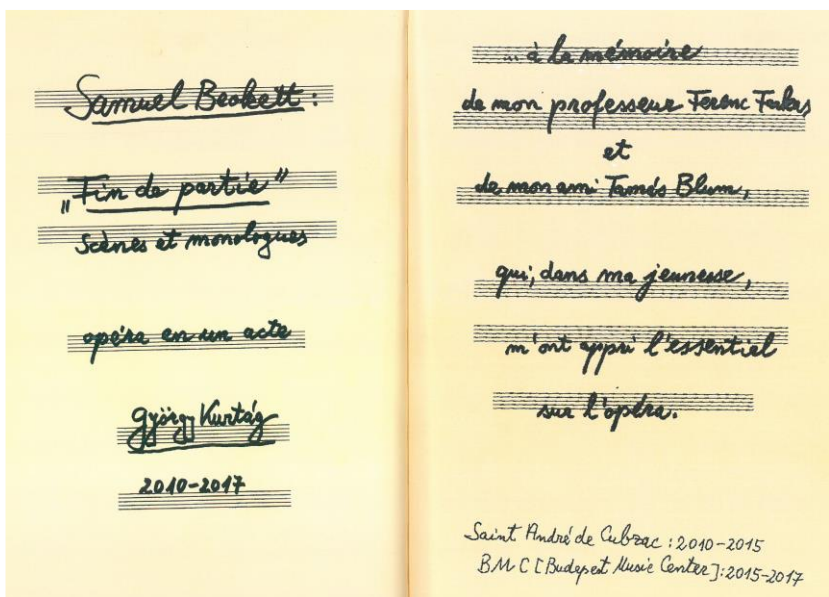 Samuel Beckett:
„Fin de partie”
Scènes et monologues
opéra en un acte
György Kurtág
2010-2017
... à la mémoire
de mon professeur Ferenc Farkas
et
de mon ami Tamás Blum,
qui, dans ma jeunesse,
m'ont appri l'essentiel
sur l'opéra.
Saint André de Cubzac : 2010-2015
BMC [Budapest Music Center]: 2015-2017